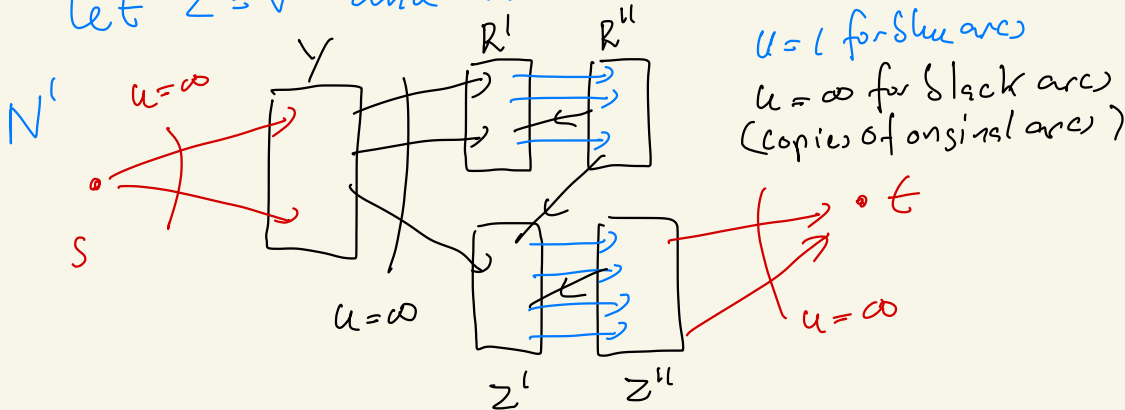 let Z=V and
N'
u=∞
S
Y
R' R"
u=1 for blue arcs
u=∞ for black arcs
(copies of original arcs)
t
u=∞
u=∞
Z' Z"